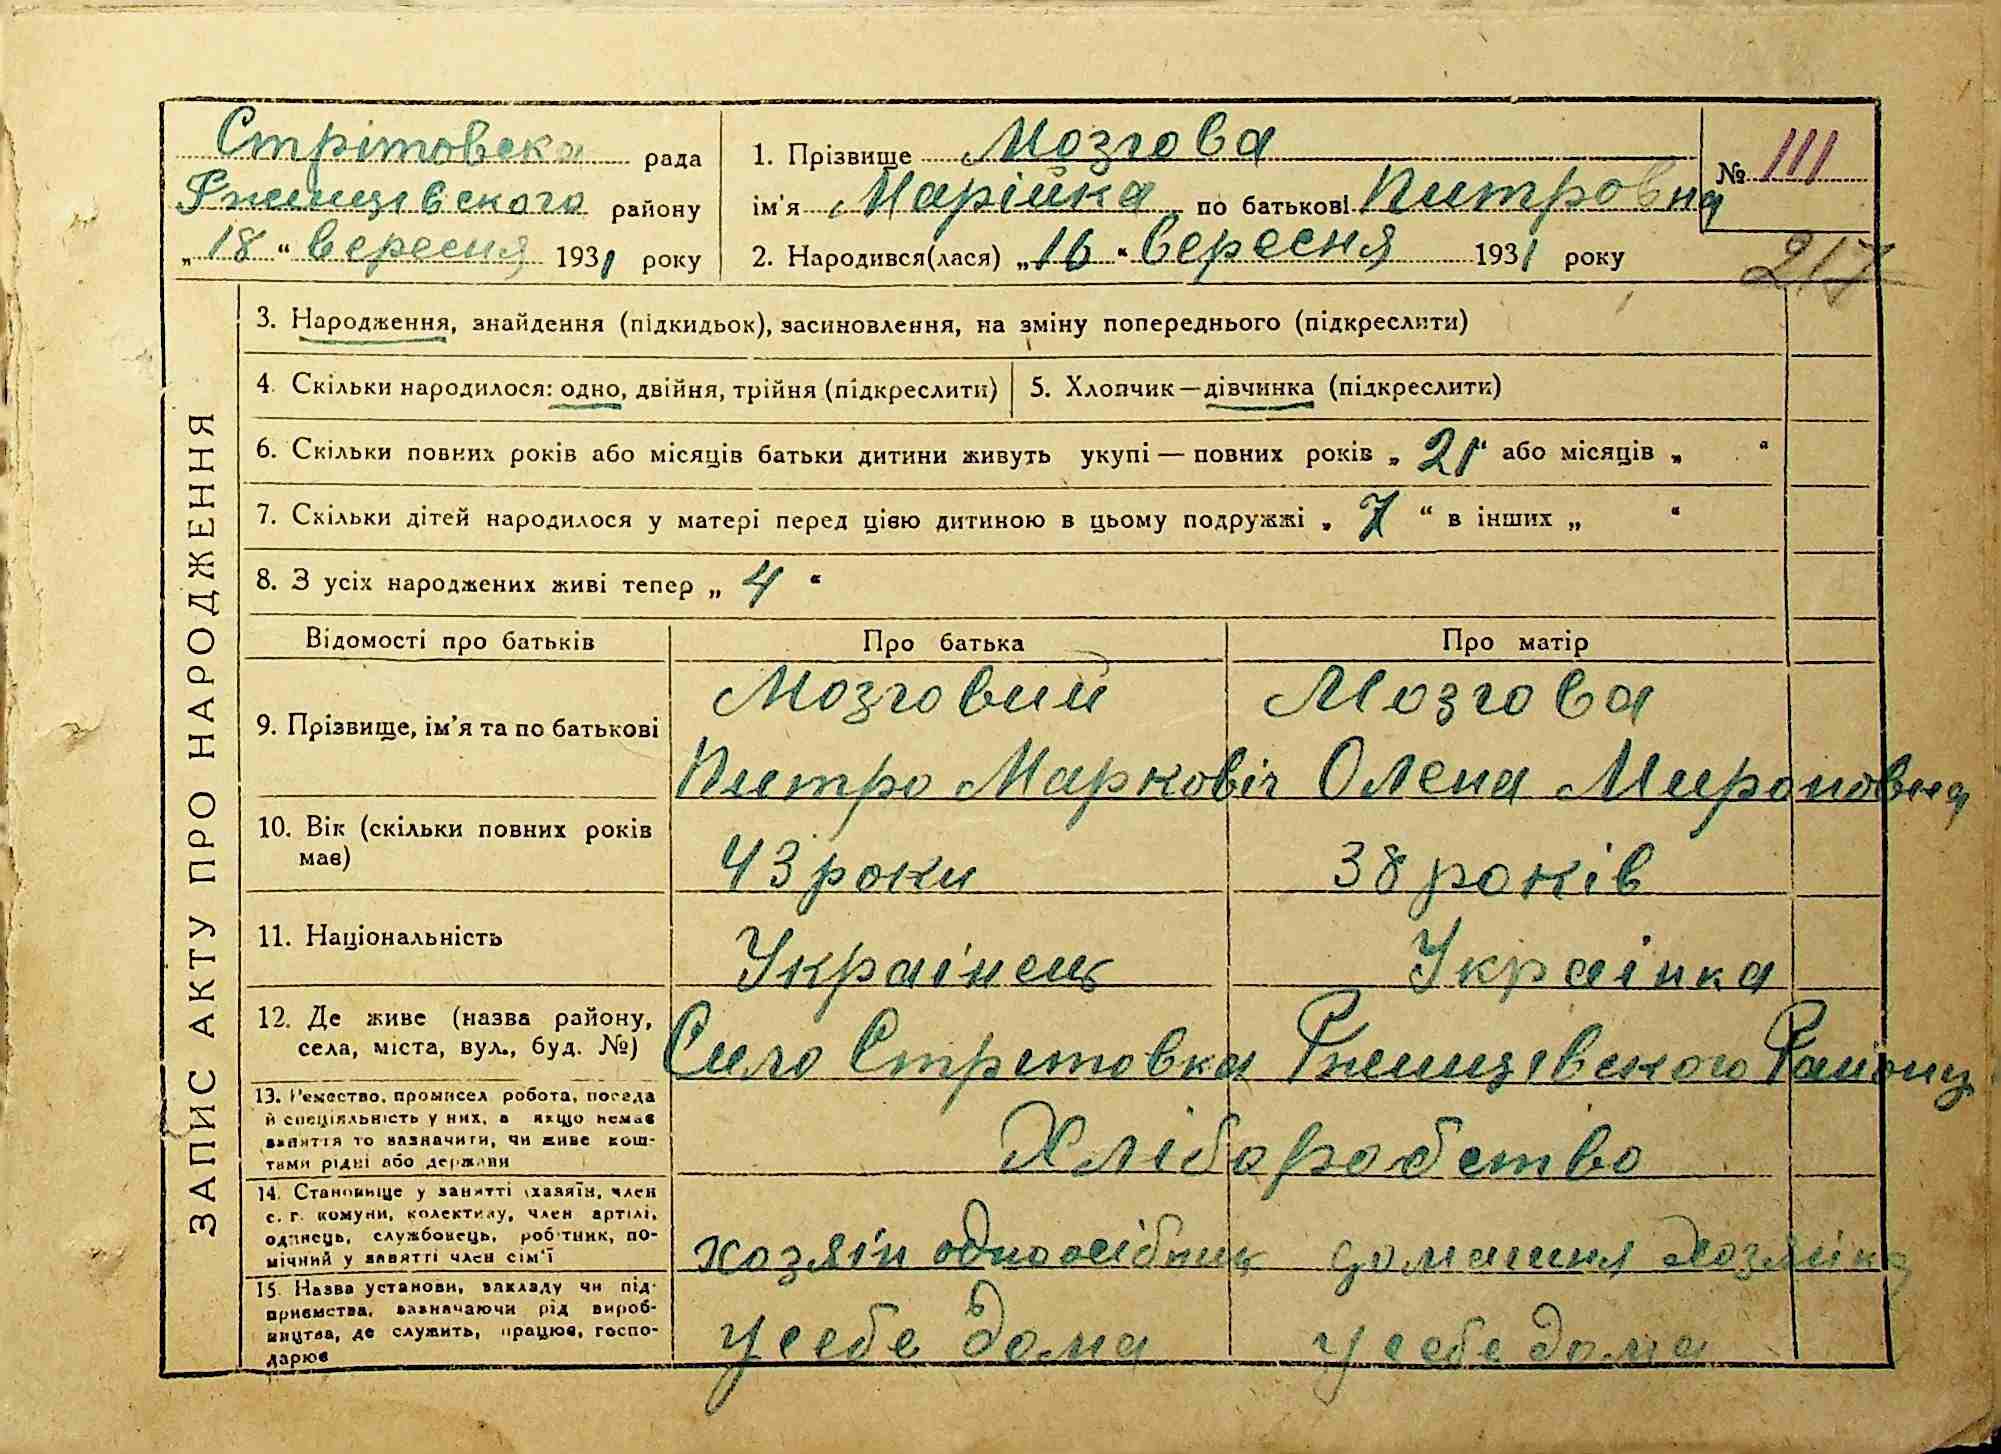 Стрітовска рада
Ржищівского району
„18“ вересня 1931 року
1. Прізвище Мозгова
ім'я Марійка по батькові Питровна
2. Народився(лася) „16“ вересня 1931 року
№ 111
217
ЗАПИС АКТУ ПРО НАРОДЖЕННЯ
3. Народження, знайдення (підкидьок), засиновлення, на зміну попереднього (підкреслити)
4. Скільки народилося: одно, двійня, трійня (підкреслити)
5. Хлопчик—дівчинка (підкреслити)
6. Скільки повних років або місяців батьки дитини живуть укупі — повних років „21“ або місяців „ “
7. Скільки дітей народилося у матері перед цією дитиною в цьому подружжі „7“ в інших „ “
8. З усіх народжених живі тепер „4“
Відомості про батьків
Про батька
Про матір
9. Прізвище, ім'я та по батькові
Мозговий
Питро Марковіч
Мозгова
Олена Мироновна
10. Вік (скільки повних років
має)
43 роки
38 років
11. Національність
Украінець
Украінка
12. Де живе (назва району,
села, міста, вул., буд. №)
Сило Стритовка Ржищівского Району
13. Ремество, промисел, робота, посада
й спеціяльність у них, а якщо немає
заняття то зазначити, чи живе кош-
тами рідні або держави
Хліборобство
14. Становище у занятті (хазяїн, член
с. г. комуни, колективу, член артілі,
одинець, службовець, робітник, по-
мічний у занятті член сім'ї
хозяін одноосібник
домашня хозяйка
15. Назва установи, закладу чи під-
приємства, зазначаючи рід вироб-
ництва, де служить, працює, госпо-
дарює
у себе дома
у себе дома